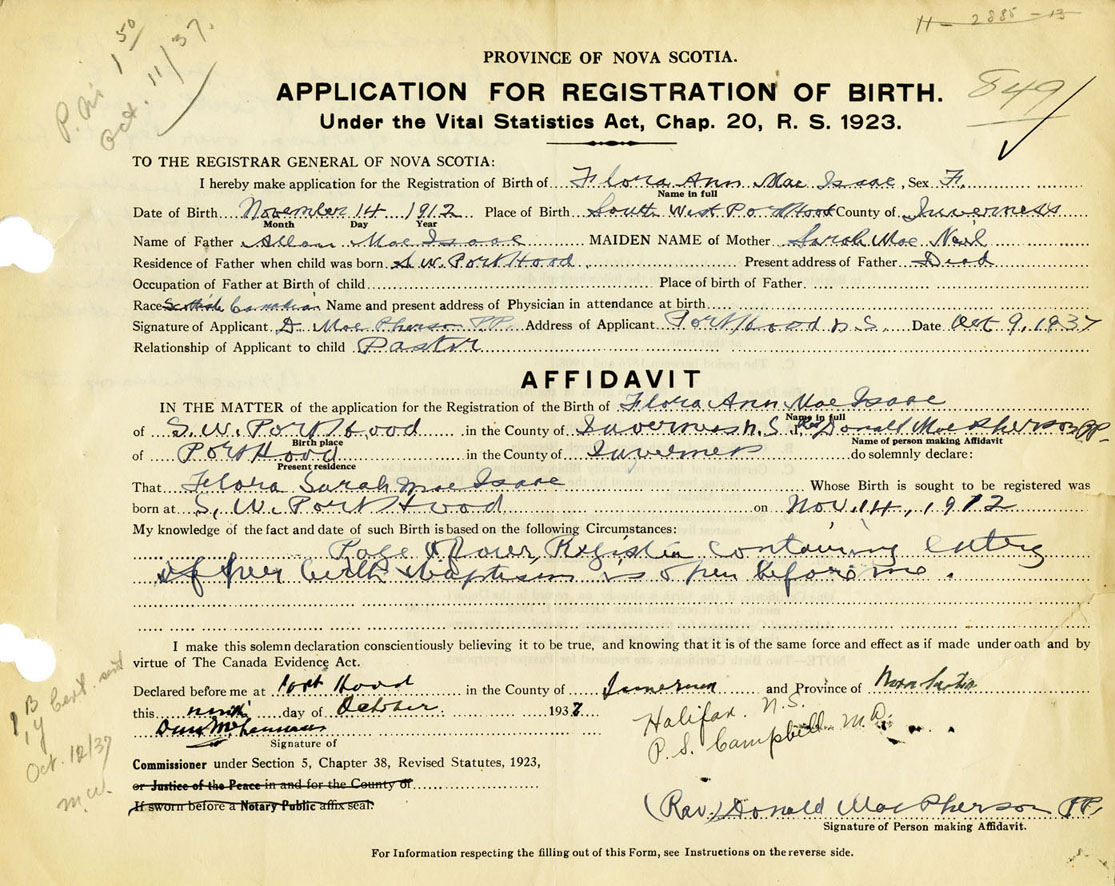 11-2885-13
P. M. 1 50
Oct. 11/37.
849
PROVINCE OF NOVA SCOTIA.
APPLICATION FOR REGISTRATION OF BIRTH.
Under the Vital Statistics Act, Chap. 20, R. S. 1923.
TO THE REGISTRAR GENERAL OF NOVA SCOTIA:
I hereby make application for the Registration of Birth of Flora Ann Mac Isaac, Sex F.
Name in full
Date of Birth November 14 1912 Place of Birth South West Port Hood County of Inverness
Month Day Year
Name of Father Allan Mac Isaac MAIDEN NAME of Mother Sarah Mac Neil
Residence of Father when child was born S.W. Port Hood Present address of Father Dead
Occupation of Father at Birth of child Place of birth of Father
Race Scottish Canadian Name and present address of Physician in attendance at birth
Signature of Applicant D. Mac Pherson P.P. Address of Applicant Port Hood N.S. Date Oct 9, 1937
Relationship of Applicant to child Pastor
AFFIDAVIT
IN THE MATTER of the application for the Registration of the Birth of Flora Ann Mac Isaac
Name in full
of S.W. Port Hood in the County of Inverness N.S. I, Rev Donald MacPherson PP
Birth place Name of person making Affidavit
of Port Hood in the County of Inverness do solemnly declare:
Present residence
That Flora Sarah Mac Isaac Whose Birth is sought to be registered was
born at S. W. Port Hood on Nov. 14, 1912
My knowledge of the fact and date of such Birth is based on the following Circumstances:
Page of our Register containing entry
of her birth & baptism is open before me.
I make this solemn declaration conscientiously believing it to be true, and knowing that it is of the same force and effect as if made under oath and by
virtue of The Canada Evidence Act.
Declared before me at Port Hood in the County of Inverness and Province of Nova Scotia
this ninth day of October 1937
Halifax. N.S.
P.S. Campbell M.D.
Signature of
Commissioner under Section 5, Chapter 38, Revised Statutes, 1923,
or Justice of the Peace in and for the County of
If sworn before a Notary Public affix seal.
1 B
1 y Cert. sent
Oct. 12/37
M.W.
(Rev.) Donald MacPherson PP.
Signature of Person making Affidavit.
For Information respecting the filling out of this Form, see Instructions on the reverse side.